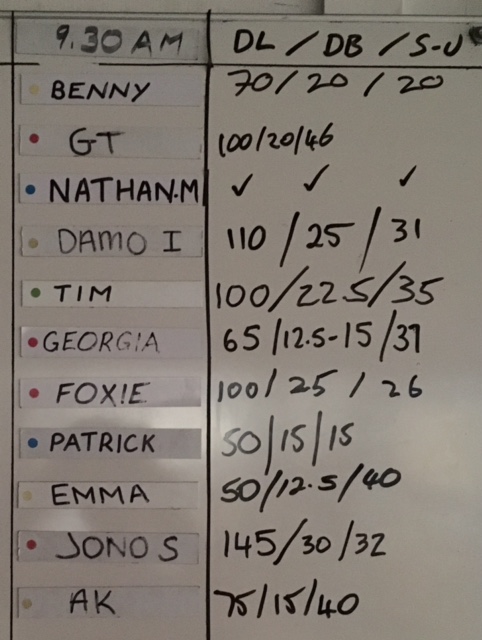 9.30 AM DL / DB / S-U
BENNY 70 / 20 / 20
GT 100/20/46
NATHAN.M ✓ ✓ ✓
DAMO I 110 / 25 / 31
TIM 100/22.5/35
GEORGIA 65 /12.5-15 /37
FOXIE 100/ 25 / 26
PATRICK 50/15/15
EMMA 50/12.5/40
JONO S 145/30/32
AK 75/15/40